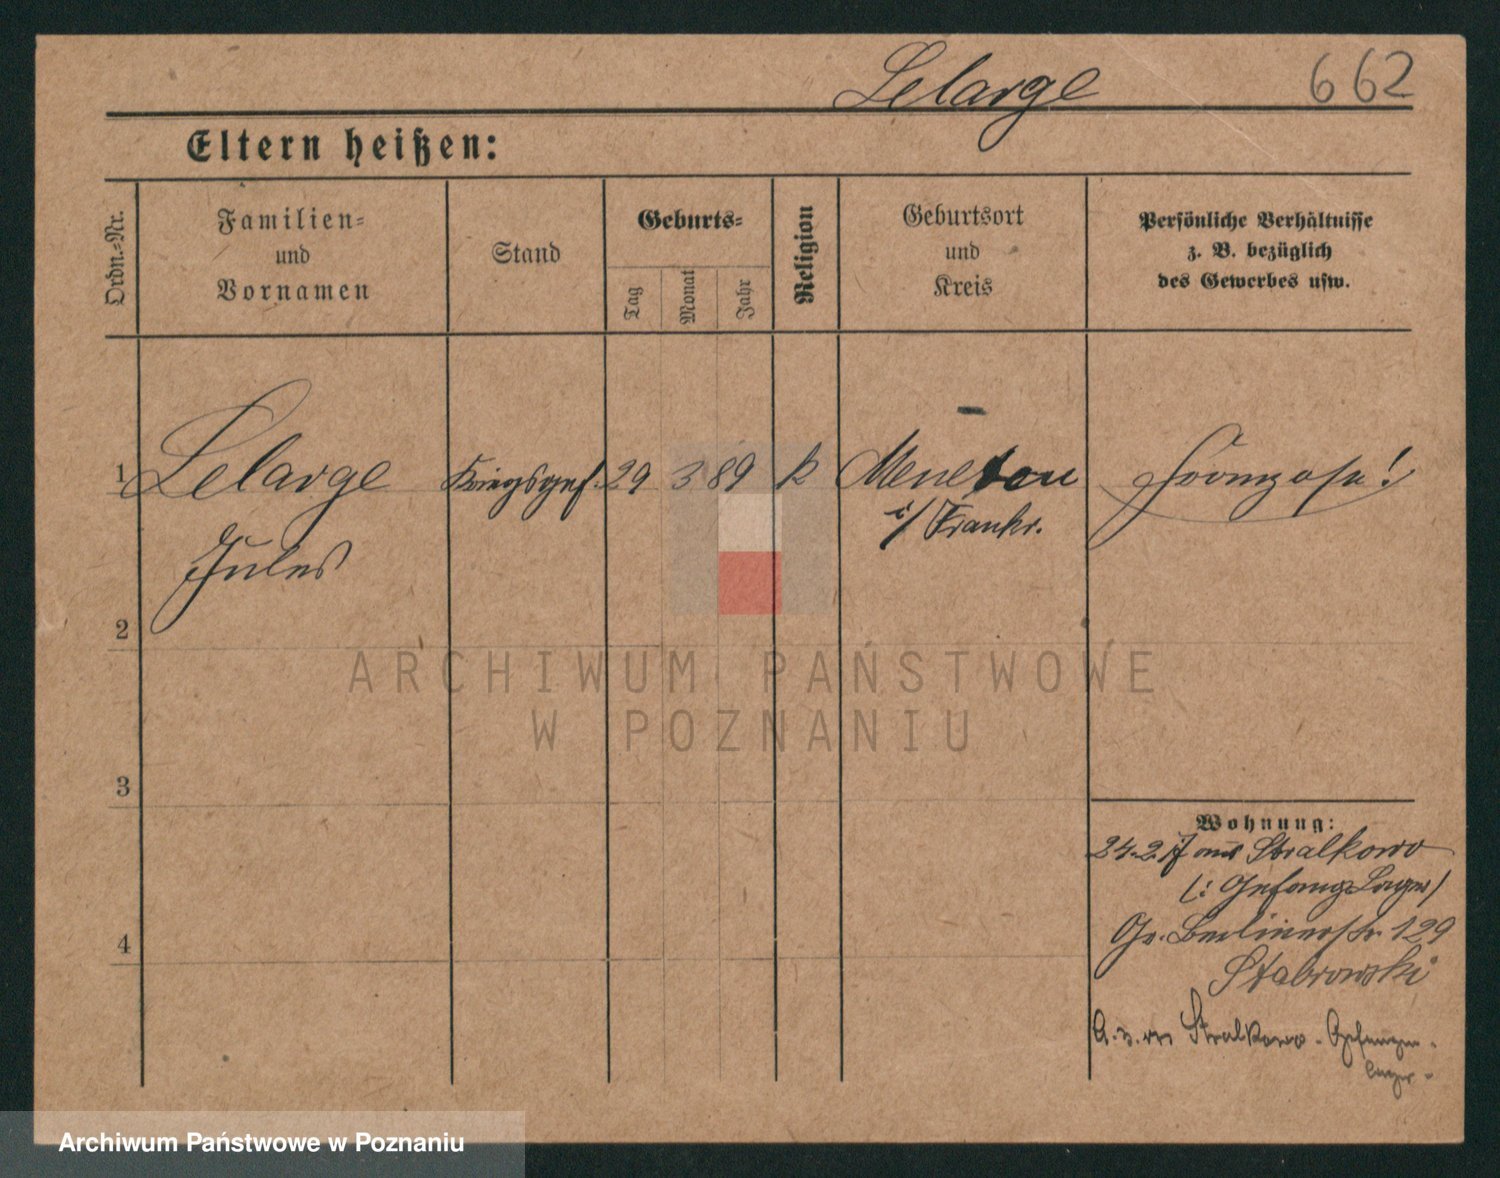 Lelarge 662
Eltern heißen:
Ordn.-Nr.
Familien-
und
Vornamen
Stand
Geburts-
Tag
Monat
Jahr
Religion
Geburtsort
und
Kreis
Persönliche Verhältnisse
z. B. bezüglich
des Gewerbes usw.
1 Lelarge Kriegsgef. 29 3 89 k Menetou Franzose!
i/ Frankr.
Jules
2
3
4
Wohnung:
24.2.17 aus Stralkowo
(: Gefang. Lager /
Gr. Berlinerstr. 129
Stabrowski
Stralkowo - Gefangen-
lager -
ARCHIWUM PAŃSTWOWE
W POZNANIU
Archiwum Państwowe w Poznaniu